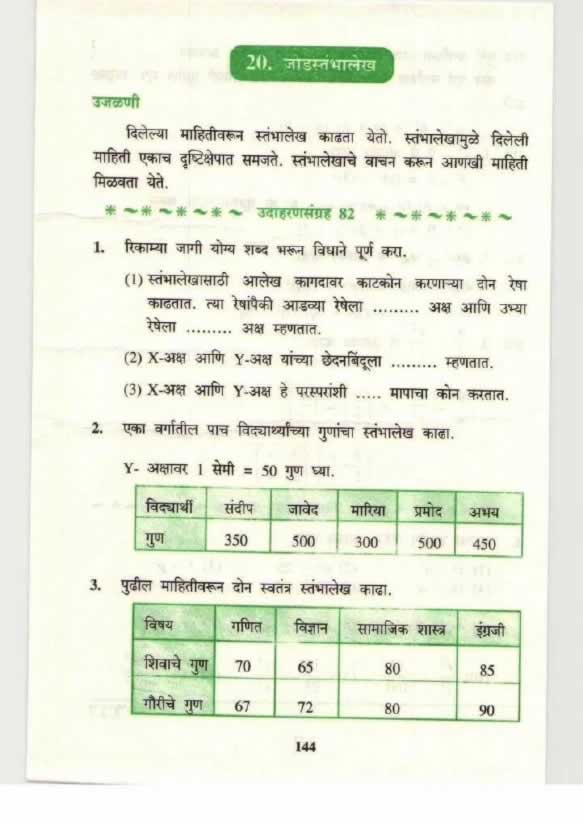 20. जोडस्तंभालेख
उजळणी
दिलेल्या माहितीवरून स्तंभालेख काढता येतो. स्तंभालेखामुळे दिलेली
माहिती एकाच दृष्टिक्षेपात समजते. स्तंभालेखाचे वाचन करून आणखी माहिती
मिळवता येते.
* ~ * ~ * ~ * ~ * ~ उदाहरणसंग्रह 82 * ~ * ~ * ~ * ~ * ~
1. रिकाम्या जागी योग्य शब्द भरून विधाने पूर्ण करा.
(1) स्तंभालेखासाठी आलेख कागदावर काटकोन करणाऱ्या दोन रेषा
काढतात. त्या रेषांपैकी आडव्या रेषेला ......... अक्ष आणि उभ्या
रेषेला ......... अक्ष म्हणतात.
(2) X-अक्ष आणि Y-अक्ष यांच्या छेदनबिंदूला ......... म्हणतात.
(3) X-अक्ष आणि Y-अक्ष हे परस्परांशी ..... मापाचा कोन करतात.
2. एका वर्गातील पाच विद्यार्थ्यांच्या गुणांचा स्तंभालेख काढा.
Y- अक्षावर 1 सेमी = 50 गुण घ्या.
विद्यार्थी संदीप जावेद मारिया प्रमोद अभय
गुण 350 500 300 500 450
3. पुढील माहितीवरून दोन स्वतंत्र स्तंभालेख काढा.
विषय गणित विज्ञान सामाजिक शास्त्र इंग्रजी
शिवाचे गुण 70 65 80 85
गौरीचे गुण 67 72 80 90
144